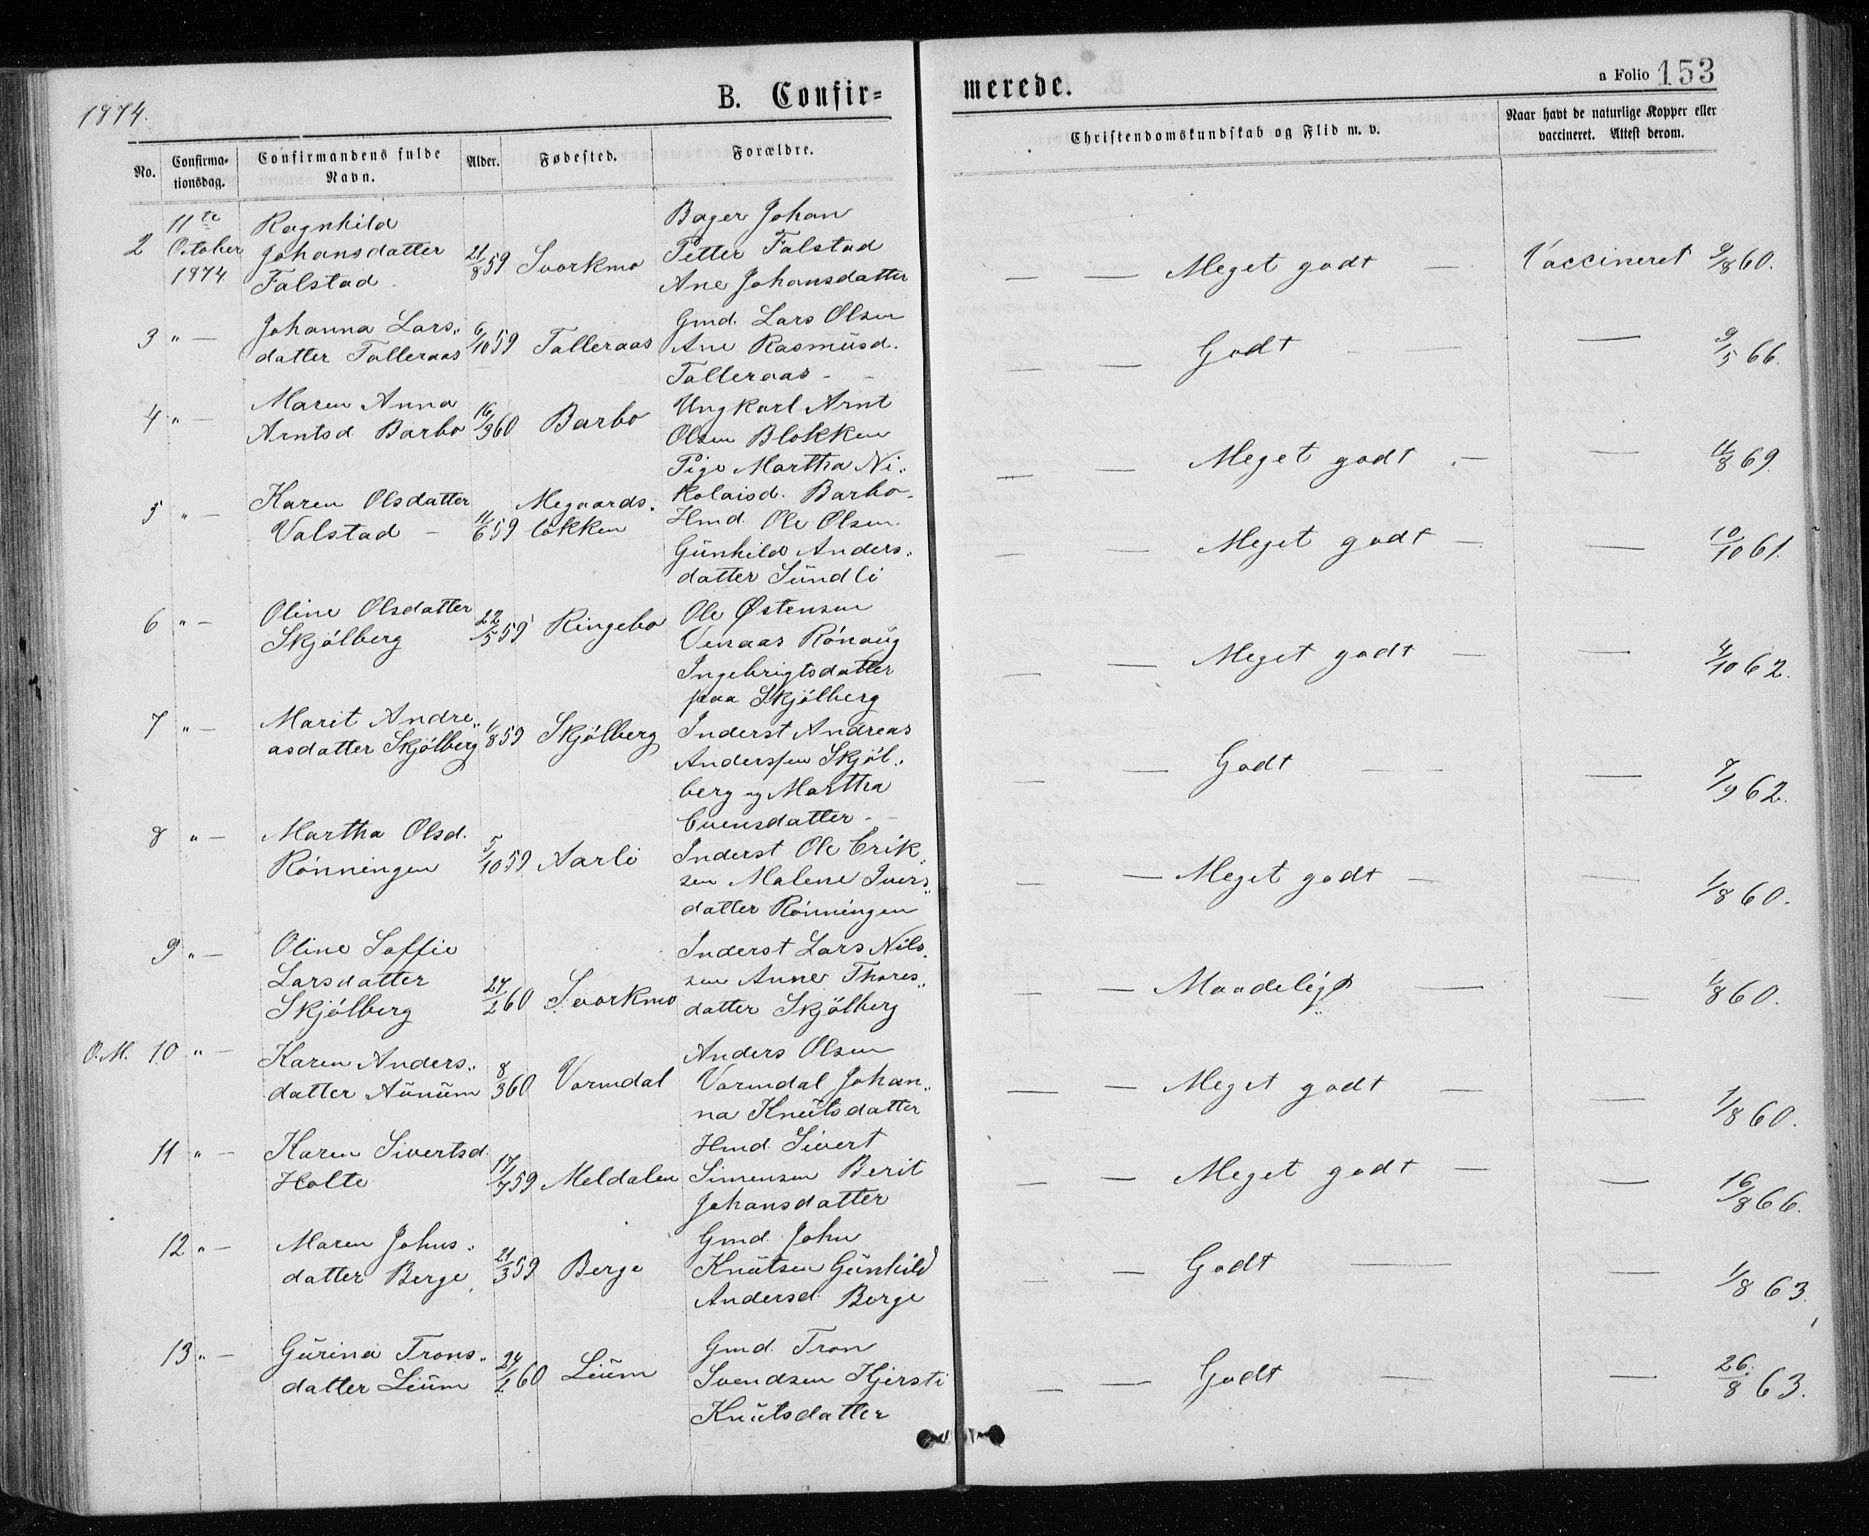 1874.
B. Confir=
merede.
a Folio 153
No.
Confirma-
tionsdag.
Confirmandens fulde
Navn.
Alder.
Fødested.
Forældre.
Christendomskundskab og Flid m. v.
Naar havt de naturlige Kopper eller
vaccineret. Attest derom.
2
11te
October
1874
Ragnhild
Johansdatter
Falstad
21/8 59
Svorkmo
Bager Johan
Petter Falstad
Ane Johansdatter
— — Meget godt —
Vaccineret 9/8 60.
3 " —
Johanna Lars„
datter Talleraas
6/10 59
Talleraas
Gmd. Lars Olsen
Ane Rasmusd.
Talleraas -
— — Godt — —
— 9/5 66.
4 " —
Maren Anna
Arntsd. Barbo
16/3 60
Barbo
Ungkarl Arnt
Olsen Blokken
Pige Martha Ni„
kolaisd. Barbo.
— — Meget godt —
— 11/8 69.
5 " —
Karen Olsdatter
Valstad —
11/6 59
Megaards.
løkken
Hmd. Ole Olsen.
Gunhild Anders„
datter Sundli
— — Meget godt —
— 10/10 61.
6 " —
Oline Olsdatter
Skjølberg
22/5 59
Ringebo
Ole Østensen
Venaas Rønaug
Ingebrigtsdatter
paa Skjølberg
— Meget godt —
— 4/10 62.
7 " —
Marit Andre„
asdatter Skjølberg
1/8 59
Skjølberg
Inderst Andreas
Anderssen Skjøl„
berg og Martha
Evensdatter -
— — Godt —
— 7/9 62.
8 " —
Martha Olsd.
Rønningen
5/10 59
Aarli
Inderst Ole Erik„
sen Malene Ivers„
datter Rønningen
— — Meget godt —
— 1/8 60.
9 " —
Oline Soffie
Larsdatter
Skjølberg
27/2 60
Svorkmo
Inderst Lars Nils„
sen Anne Thores„
datter Skjølberg
— — Maadeligt —
— 1/8 60.
O.M. 10 " —
Karen Anders„
datter Aunum
8/3 60
Vormdal
Anders Olsen
Vormdal Johan„
na Knutsdatter
— — Meget godt —
— 1/8 60.
11 " —
Karen Sivertsd.
Holte
17/7 59
Meldalen
Hmd. Sivert
Simensen Berit
Johansdatter
— — Meget godt —
— 16/8 66.
12 " —
Maren Johns„
datter Berge
21/3 59
Berge
Gmd. John
Knutsen Gunhild
Andersd. Berge
— — Godt —
— 1/8 63.
13 " —
Gurina Trons„
datter Lium
60
Lium
Gmd. Tron
Svendsen Kjersti
Knutsdatter
— — Godt — —
— 26/8 63.